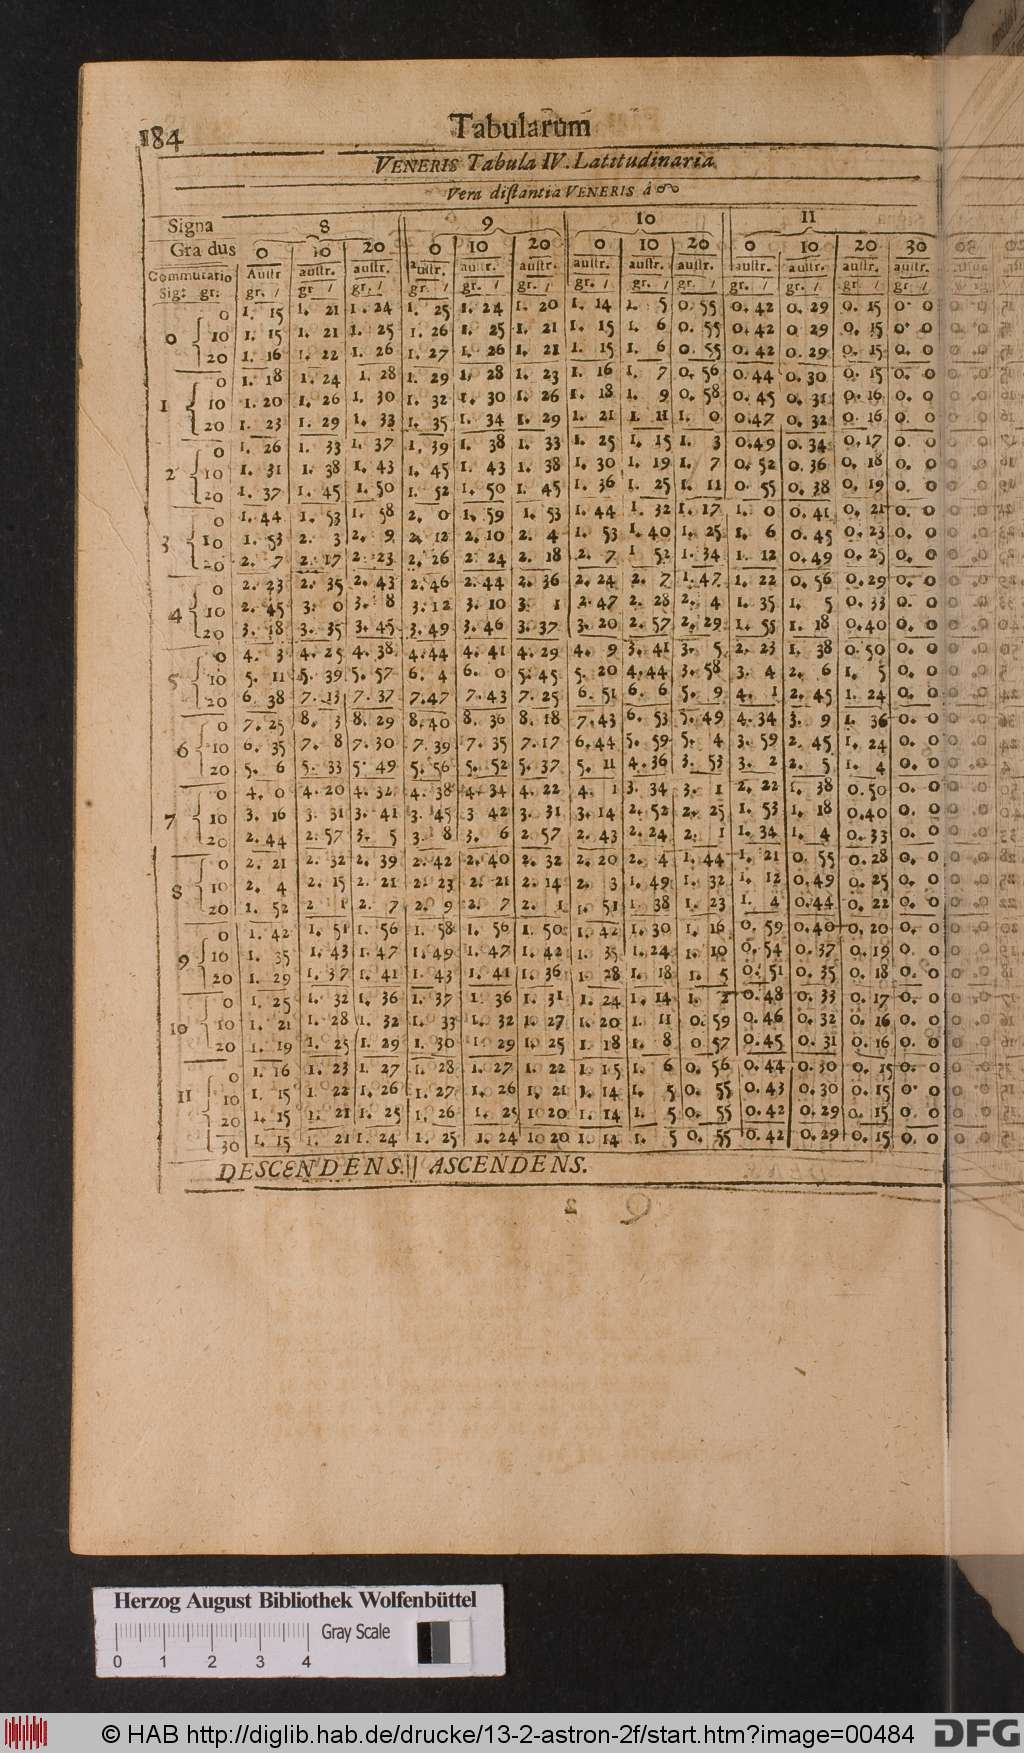 184
Tabularum
VENERIS Tabula IV. Latitudinaria
Vera distantia VENERIS à ☊
Signa 8 9 10 11
Gradus 0 10 20 0 10 20 0 10 20 0 10 20 30
Commutatio Austr austr. austr. austr. austr. austr. austr. austr. austr. austr. austr. austr. austr.
Sig: gr: gr. / gr / gr. / gr. / gr. / gr. / gr. / gr. / gr. / gr. / gr. / gr. / gr. /
0 0 1. 15 1. 21 1. 24 1. 25 1. 24 1. 20 1. 14 1. 5 0. 55 0. 42 0. 29 0. 15 0. 0
10 1. 15 1. 21 1. 25 1. 26 1. 25 1. 21 1. 15 1. 6 0. 55 0. 42 0 29 0. 15 0. 0
20 1. 16 1. 22 1. 26 1. 27 1. 26 1. 21 1. 15 1. 6 0. 55 0. 42 0. 29 0. 15 0. 0
1 0 1. 18 1. 24 1. 28 1. 29 1. 28 1. 23 1. 16 1. 7 0. 56 0. 44 0. 30 0. 15 0. 0
10 1. 20 1. 26 1. 30 1. 32 1. 30 1. 26 1. 18 1. 9 0. 58 0. 45 0. 31 0. 16 0. 0
20 1. 23 1. 29 1. 33 1. 35 1. 34 1. 29 1. 21 1. 11 1. 0 0. 47 0. 32 0. 16 0. 0
2 0 1. 26 1. 33 1. 37 1. 39 1. 38 1. 33 1. 25 1. 15 1. 3 0. 49 0. 34 0. 17 0. 0
10 1. 31 1. 38 1. 43 1. 45 1. 43 1. 38 1. 30 1. 19 1. 7 0. 52 0. 36 0. 18 0. 0
20 1. 37 1. 45 1. 50 1. 52 1. 50 1. 45 1. 36 1. 25 1. 11 0. 55 0. 38 0. 19 0. 0
3 0 1. 44 1. 53 1. 58 2. 0 1. 59 1. 53 1. 44 1. 32 1. 17 1. 0 0. 41 0. 21 0. 0
10 1. 53 2. 3 2. 9 2. 12 2. 10 2. 4 1. 53 1. 40 1. 25 1. 6 0. 45 0. 23 0. 0
20 2. 7 2. 17 2. 23 2. 26 2. 24 2. 18 2. 7 1 52 1. 34 1. 12 0. 49 0. 25 0. 0
4 0 2. 23 2. 35 2. 43 2. 46 2. 44 2. 36 2. 24 2. 7 1. 47 1. 22 0. 56 0. 29 0. 0
10 2. 45 3. 0 3. 8 3. 12 3. 10 3. 1 2. 47 2. 28 2. 4 1. 35 1. 5 0. 33 0. 0
20 3. 18 3. 35 3. 45 3. 49 3. 46 3. 37 3. 20 2. 57 2. 29 1. 55 1. 18 0. 40 0. 0
5 0 4. 3 4. 25 4. 38 4. 44 4. 41 4. 29 4. 9 3. 41 3. 5 2. 23 1. 38 0. 50 0. 0
10 5. 11 5. 39 5. 57 6. 4 6. 0 5. 45 5. 20 4. 44 3. 58 3. 4 2. 6 1. 5 0. 0
20 6. 38 7. 13 7. 37 7. 47 7. 43 7. 25 6. 51 6. 6 5. 9 4. 1 2. 45 1. 24 0. 0
6 0 7. 25 8. 3 8. 29 8. 40 8. 36 8. 18 7. 43 6. 53 5. 49 4. 34 3. 9 1. 36 0. 0
10 6. 35 7. 8 7. 30 7. 39 7. 35 7. 17 6. 44 5. 59 5. 4 3. 59 2. 45 1. 24 0. 0
20 5. 6 5. 33 5. 49 5. 56 5. 52 5. 37 5. 11 4. 36 3. 53 3. 2 2. 5 1. 4 0. 0
7 0 4. 0 4. 20 4. 32 4. 38 4. 34 4. 22 4. 1 3. 34 3. 1 2. 22 1. 38 0. 50 0. 0
10 3. 16 3. 31 3. 41 3. 45 3 42 3. 31 3. 14 2. 52 2. 25 1. 53 1. 18 0. 40 0. 0
20 2. 44 2. 57 3. 5 3. 8 3. 6 2. 57 2. 43 2. 24 2. 1 1. 34 1. 4 0. 33 0. 0
8 0 2. 21 2. 32 2. 39 2. 42 2. 40 2. 32 2. 20 2. 4 1. 44 1. 21 0. 55 0. 28 0. 0
10 2. 4 2. 15 2. 21 2. 23 2. 21 2. 14 2. 3 1. 49 1. 32 1. 12 0. 49 0. 25 0. 0
20 1. 52 2 1 2. 7 2. 9 2. 7 2. 1 1. 51 1. 38 1. 23 1. 4 0. 44 0. 22 0. 0
9 0 1. 42 1. 51 1. 56 1. 58 1. 56 1. 50 1. 42 1. 30 1. 16 0. 59 0. 40 0. 20 0. 0
10 1. 35 1. 43 1. 47 1. 49 1. 47 1. 42 1. 35 1. 24 1. 10 0. 54 0. 37 0. 19 0. 0
20 1. 29 1. 37 1. 41 1. 43 1. 41 1. 36 1. 28 1. 18 1. 5 0. 51 0. 35 0. 18 0. 0
10 0 1. 25 1. 32 1. 36 1. 37 1. 36 1. 31 1. 24 1. 14 1. 2 0. 48 0. 33 0. 17 0. 0
10 1. 21 1. 28 1. 32 1. 33 1. 32 1. 27 1. 20 1. 11 0. 59 0. 46 0. 32 0. 16 0. 0
20 1. 19 1. 25 1. 29 1. 30 1. 29 1. 25 1. 18 1. 8 0 57 0. 45 0. 31 0. 16 0. 0
11 0 1. 16 1. 23 1. 27 1. 28 1. 27 1. 22 1. 15 1. 6 0. 56 0. 44 0. 30 0. 15 0. 0
10 1. 15 1. 22 1. 26 1. 27 1. 26 1. 21 1. 14 1. 5 0. 55 0. 43 0. 30 0. 15 0. 0
20 1. 15 1. 21 1. 25 1. 26 1. 25 1. 20 1. 14 1. 5 0. 55 0. 42 0. 29 0. 15 0. 0
30 1. 15 1. 21 1. 24 1. 25 1. 24 1. 20 1. 14 1. 5 0. 55 0. 42 0. 29 0. 15 0. 0
DESCENDENS. || ASCENDENS.
Herzog August Bibliothek Wolfenbüttel
Gray Scale
0 1 2 3 4
© HAB http://diglib.hab.de/drucke/13-2-astron-2f/start.htm?image=00484
DFG